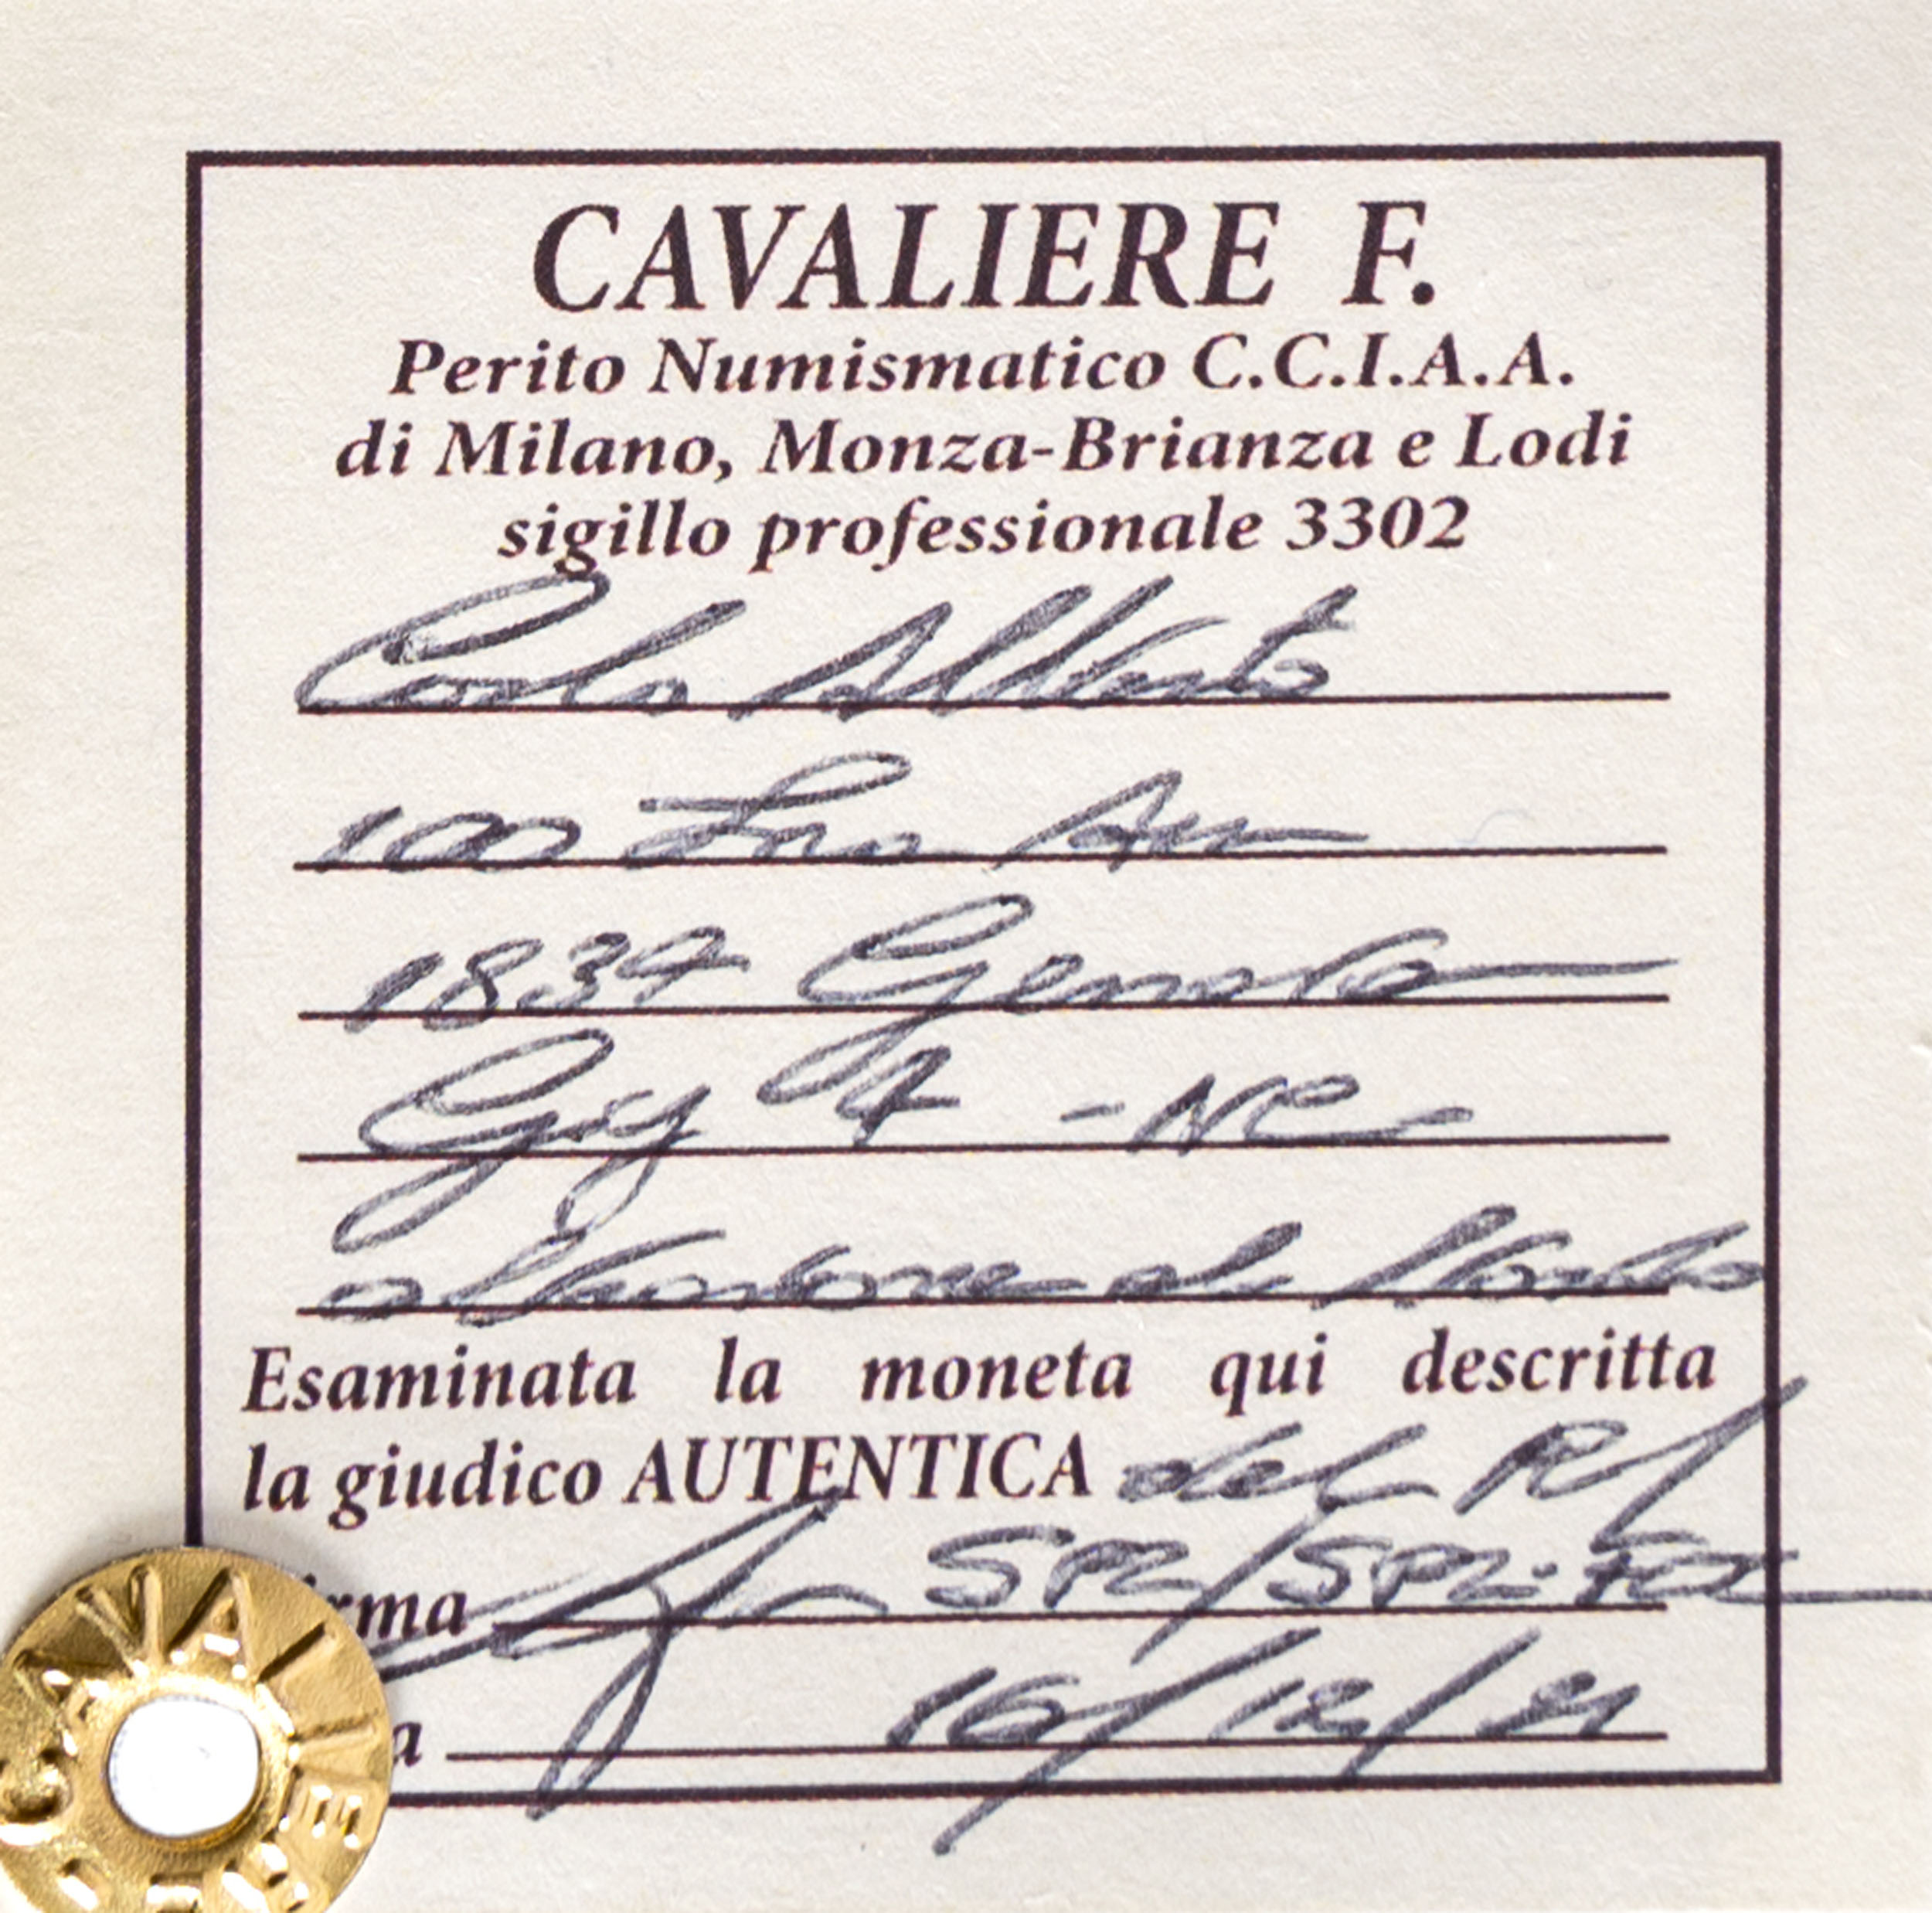 CAVALIERE F.
Perito Numismatico C.C.I.A.A.
di Milano, Monza-Brianza e Lodi
sigillo professionale 3302
Carlo Alberto
100 Lire Au
1834 Genova
Gig 4 - NC -
di
Esaminata la moneta qui descritta
la giudico AUTENTICA del
rma SPL/SPL-FDC
a 16/12/21
CAVALIERE